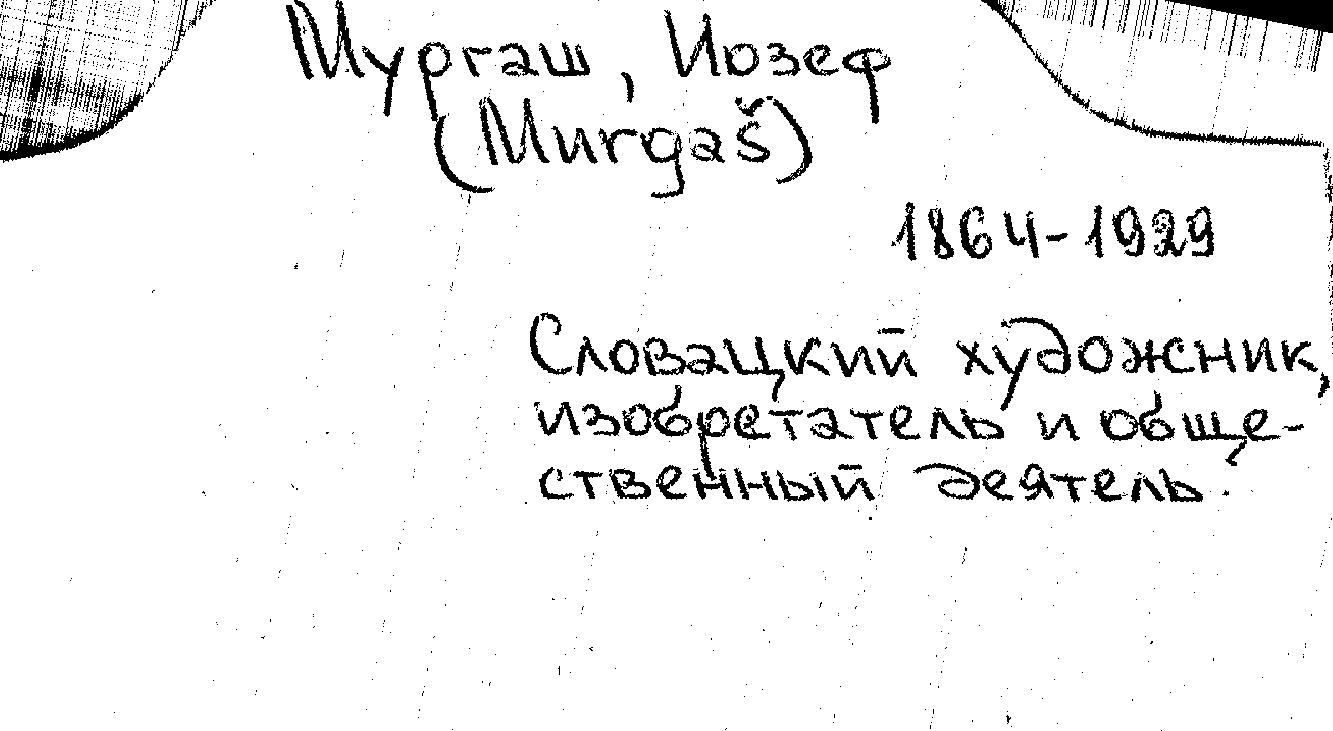 Мургаш, Иозеф
(Murgaš)
1864-1929
Словацкий художник,
изобретатель и обще-
ственный деятель.